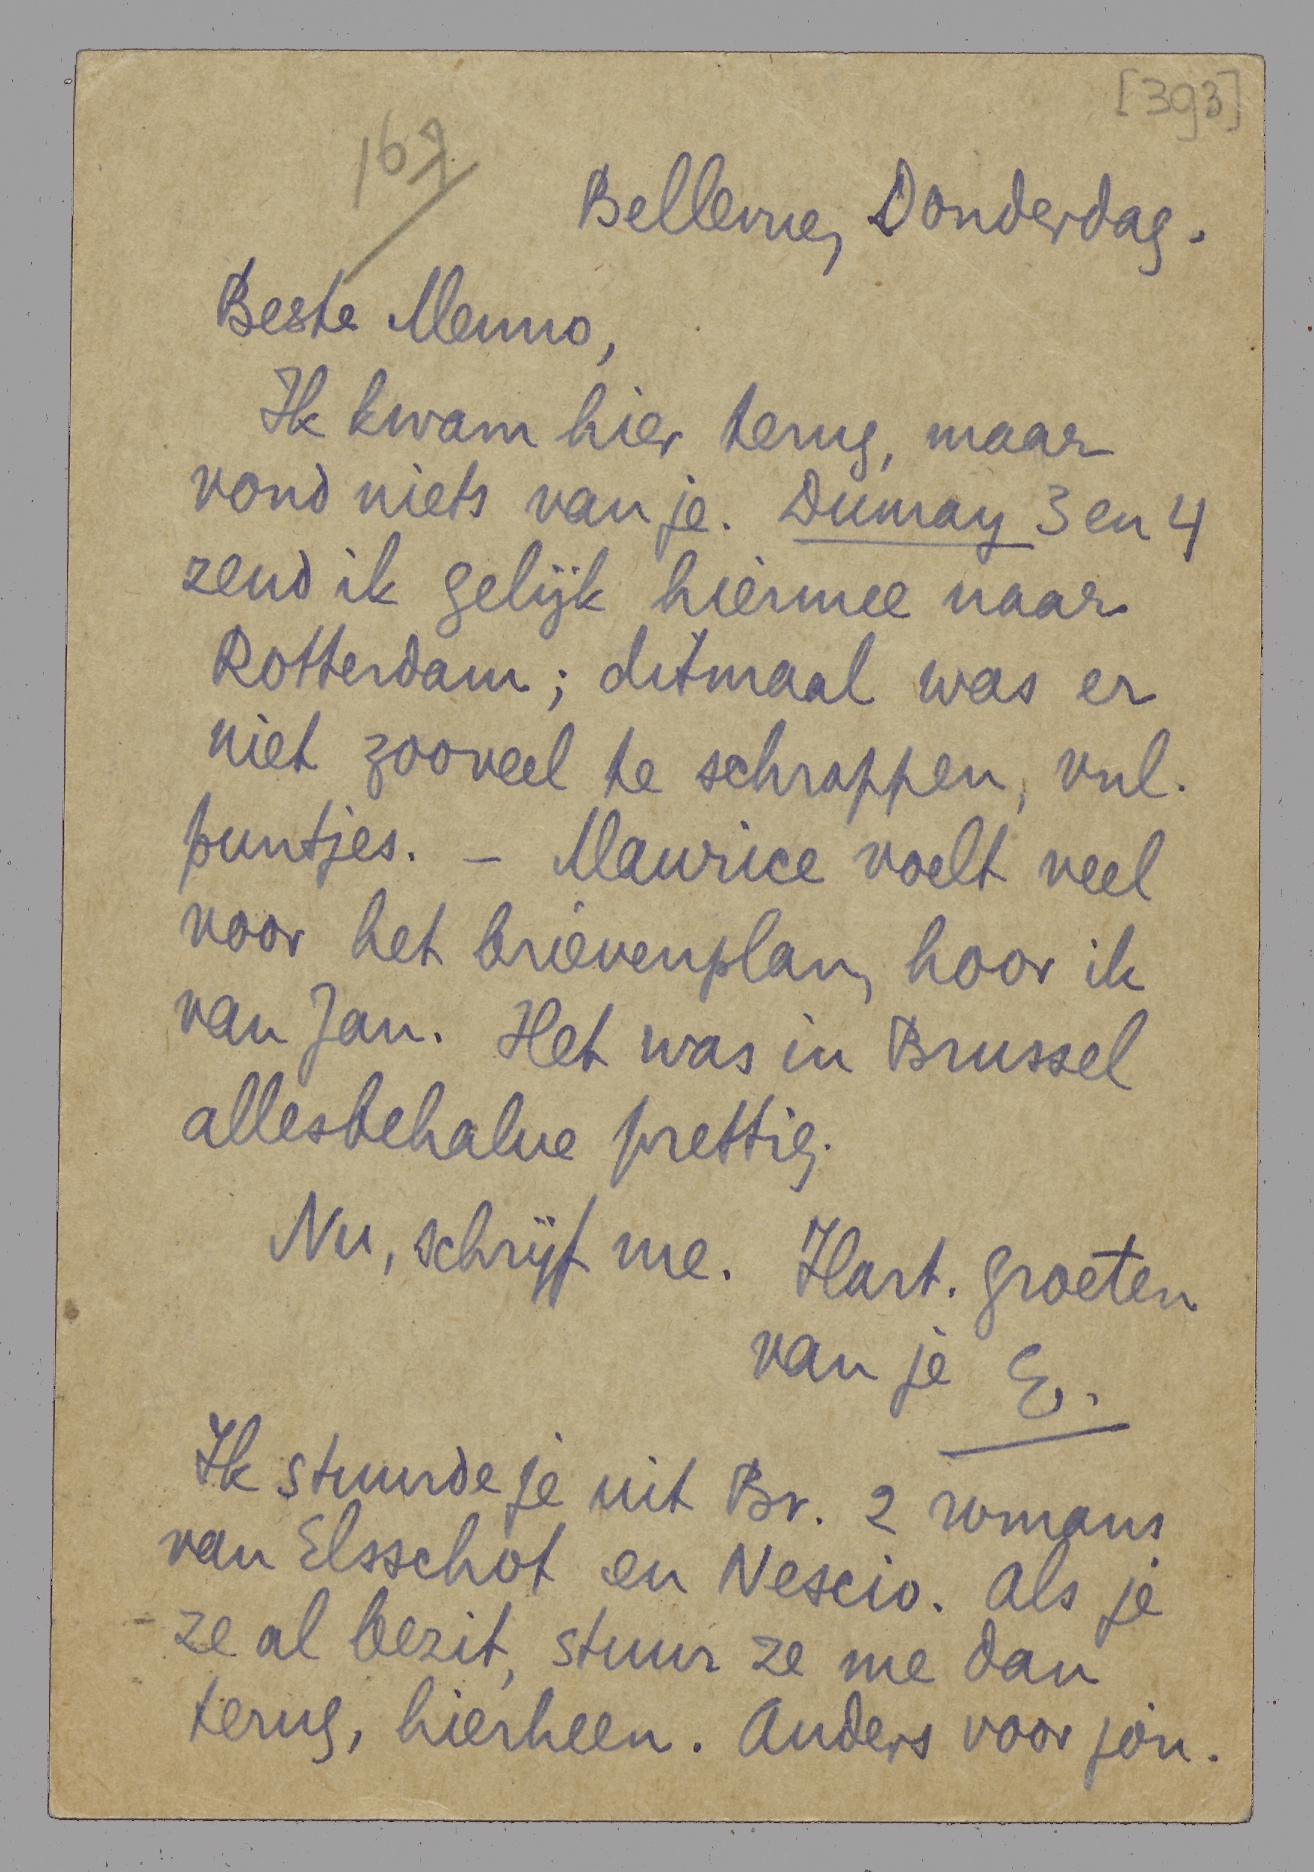 [393]
169
Bellevue, Donderdag.
Beste Menno,
Ik kwam hier terug, maar
vond niets van je. Dumay 3 en 4
zend ik gelijk hiermee naar
Rotterdam; ditmaal was er
niet zooveel te schrappen, vnl.
puntjes. – Maurice voelt veel
voor het brievenplan, hoor ik
van Jan. Het was in Brussel
allesbehalve prettig.
Nu, schrijf me. Hart. groeten
van je E.
Ik stuurde je uit Br. 2 romans
van Elsschot en Nescio. Als je
ze al bezit, stuur ze me dan
terug, hierheen. Anders voor jou.